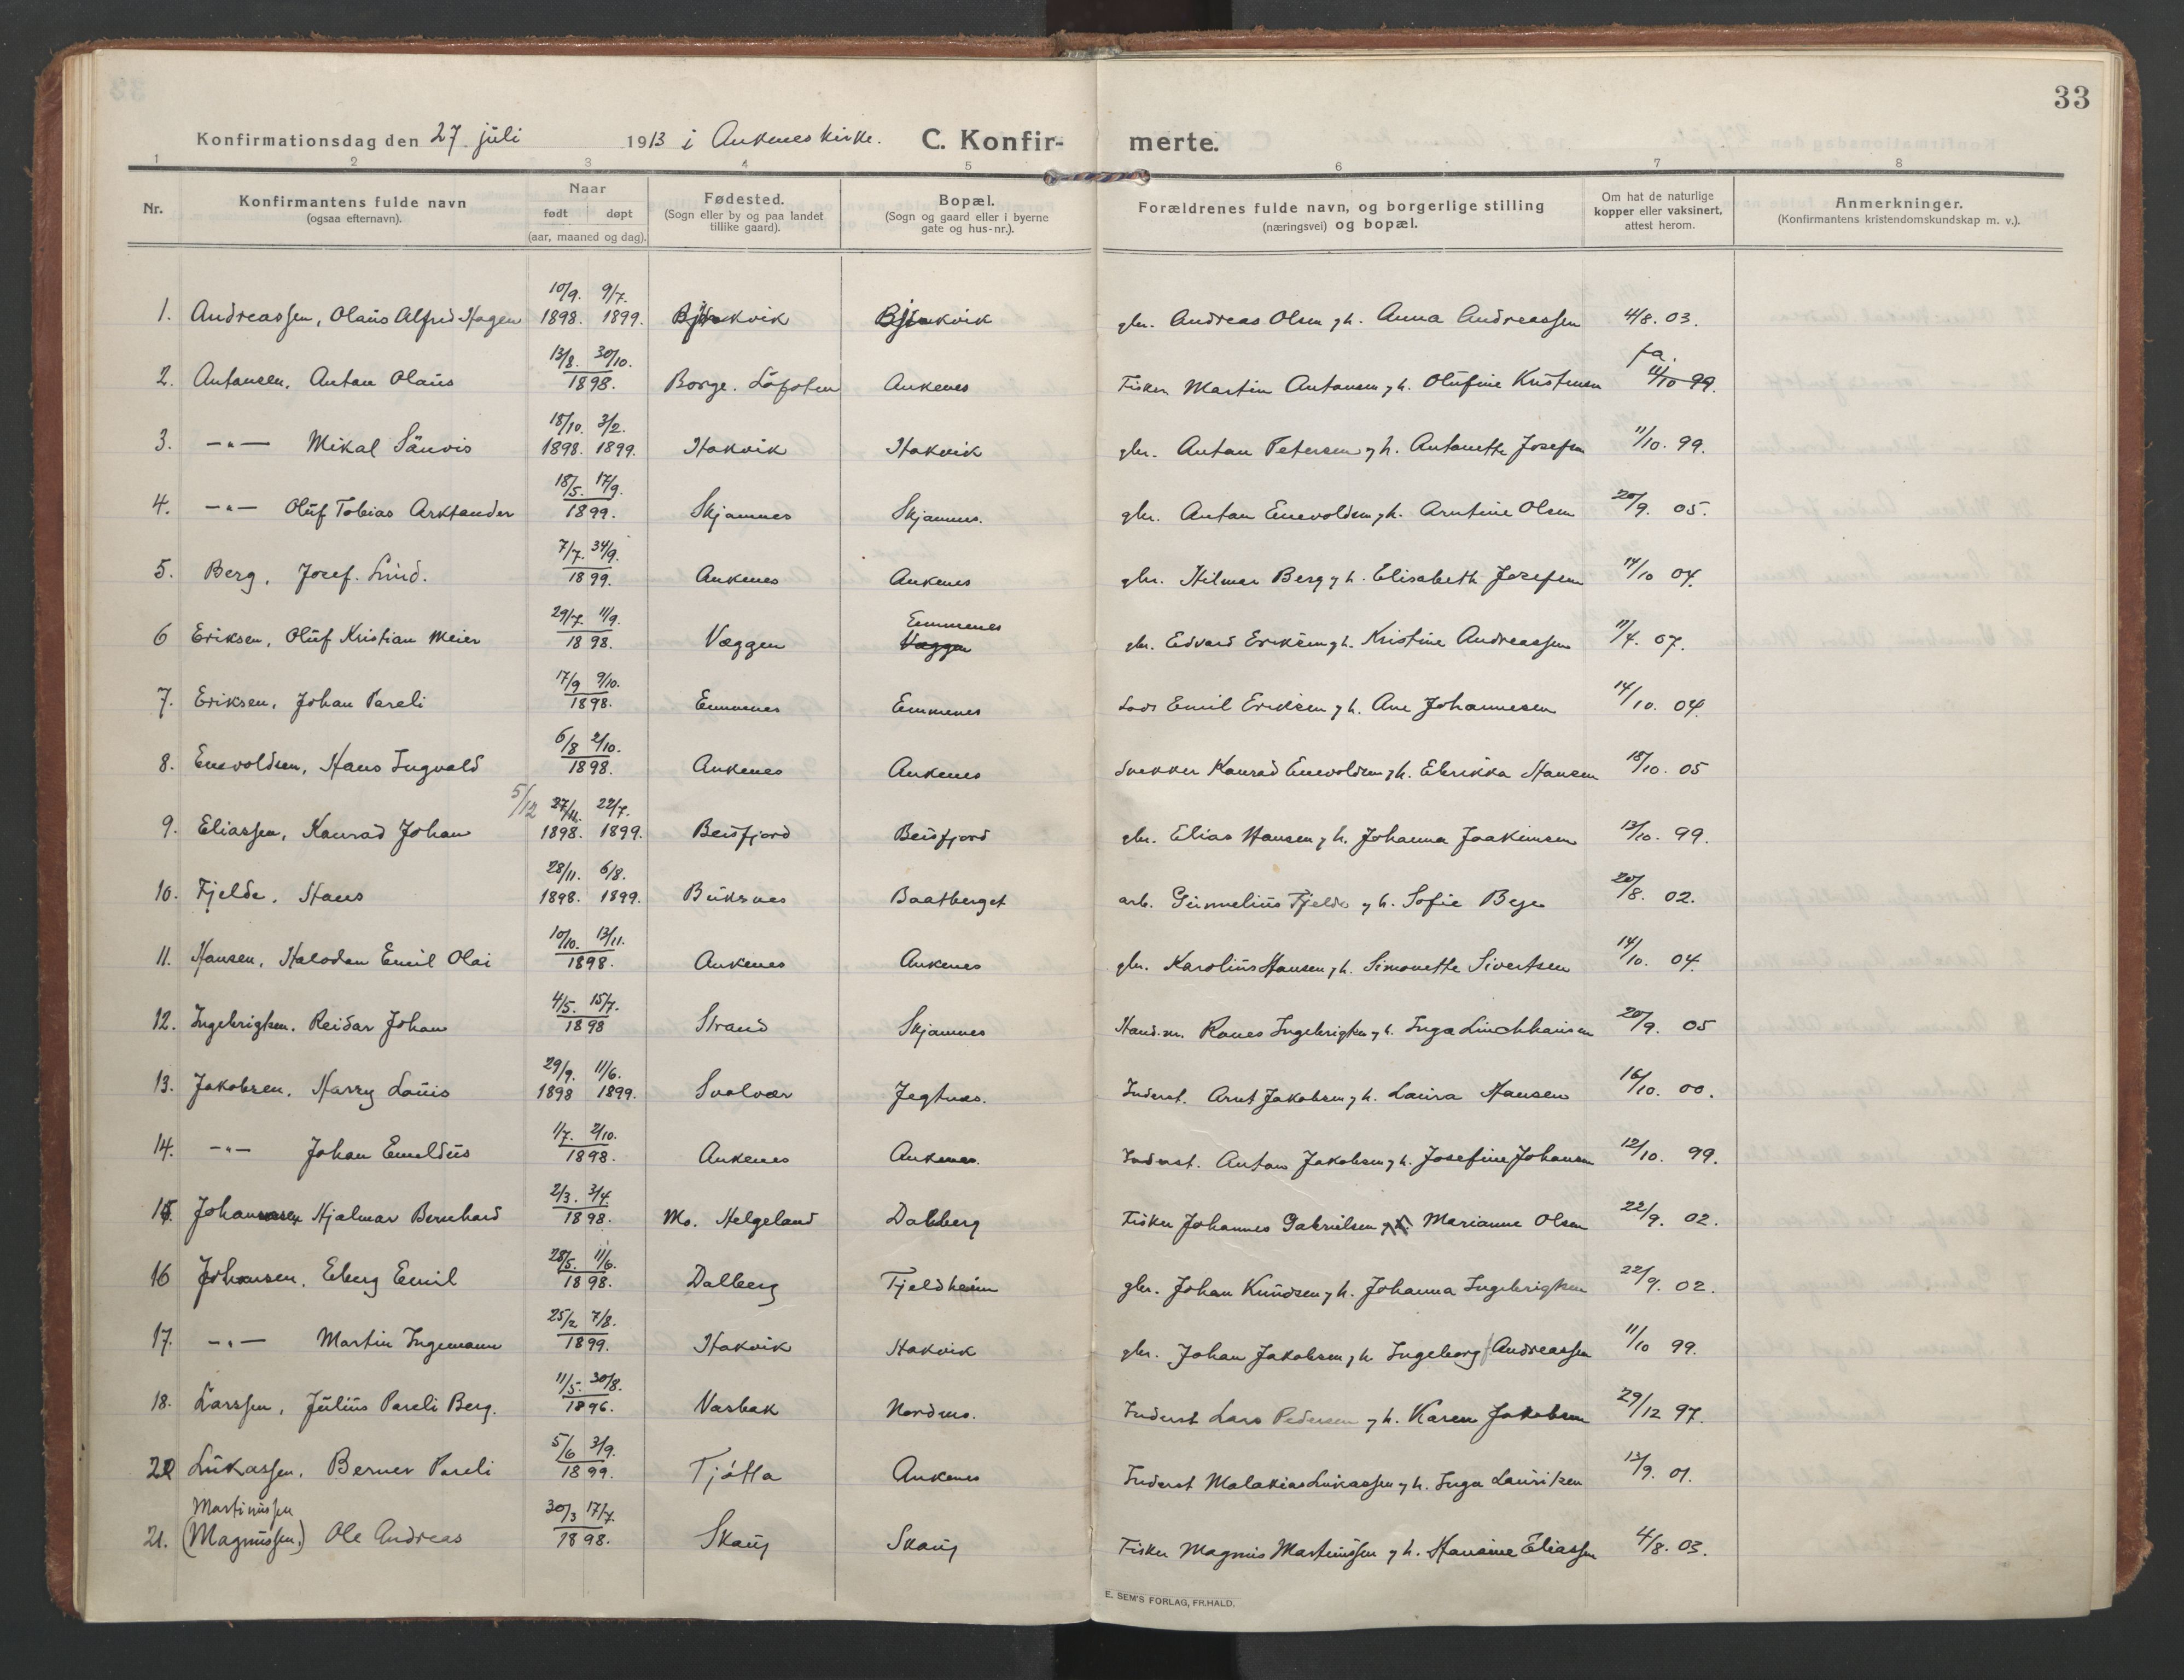 33
Konfirmationsdag den 27 juli 1913 i Ankenes kirke. C. Konfirmerte.
1 2 3 4 5 6 7 8
Nr. Konfirmantens fulde navn (ogsaa efternavn). Naar født døpt (aar, maaned og dag). Fødested. (Sogn eller by og paa landet tillike gaard). Bopæl. (Sogn og gaard eller i byerne gate og hus-nr.). Forældrenes fulde navn, og borgerlige stilling (næringsvei) og bopæl. Om hat de naturlige kopper eller vaksinert, attest herom. Anmerkninger. (Konfirmantens kristendomskundskap m. v.).
1. Andreassen, Olaus Alfred Hagen 10/9. 1898. 9/7. 1899. gbr. Andreas Olsen og h. Anna Andreassen 4/8. 03.
2. Antonsen, Anton Olaus 13/8. 30/10. 1898. Borge. Lofoten Ankenes Fisker Martin Antonsen og h. Olufine Kristensen fa. 11/10 99.
3. -"- Mikal 18/10. 1898. 3/2. 1899. Hakvik Hakvik gbr. Anton Petersen og h. Antonette Josefsen 11/10. 99.
4. -"- Oluf Tobias Arktander 18/5. 17/9. 1899. Skjamnes Skjamnes. gbr. Anton Enevoldsen og h. Arntine Olsen 20/9. 05.
5. Berg, Josef. Lind. 7/7. 1899. Ankenes Ankenes gbr. Hilmar Berg og h. Elisabeth Josefsen 14/10 04.
6 Eriksen, Oluf Kristian Meier 29/7. 11/9. 1898. Væggen Emmenes Væggen gbr. Edvard Eriksen og h. Kristine Andreassen 11/4. 07.
7. Eriksen, Johan Pareli 17/9 9/10. 1898. Emmenes Emmenes Lods Emil Eriksen og h. Ane Johannesen 14/10. 04.
8. Enevoldsen, Hans Ingvald 6/8 2/10. 1898. Ankenes Ankenes Snekker Konrad Enevoldsen og h. Elerikka Hansen 18/10. 05
9. Eliassen, Konrad Johan 5/12 27/11. 1898. 22/7. 1899. Beisfjord Beisfjord gbr. Elias Hansen og h. Johanna Joakimsen 13/10. 99.
10. Fjelde, Hans 28/11. 1898. 6/8. 1899. Buksnes Baatberget arb. Fjelde og h. Sofie 20/8. 02.
11. Hansen, Halvdan Emil Olai 10/10. 13/11. 1898. Ankenes Ankenes gbr. Karolius Hansen og h. Simonette Sivertsen 14/10. 04.
12. Ingebrigtsen, Reidar Johan 4/5. 15/7. 1898 Strand Skjamnes Hand.m. Ingebrigtsen og h. Inga 20/9. 05
13. Jakobsen, Harry Louis 29/9. 1898 11/6. 1899. Svolvær Jegtnes. Inderst. Arnt Jakobsen og h. Laura Hansen 16/10. 00.
14. -"- Johan Emeldius 1/7. 2/10. 1898. Ankenes Ankenes. Inderst. Anton Jakobsen og h. Josefine Johansen 12/10. 99.
15. Hjalmar Bernhard 2/3. 3/4. 1898. Mo. Helgeland Dalberg Fisker Johannes Gabrielsen og Marianne Olsen 22/9. 02.
16 Johansen, Eberg Emil 28/5. 11/6. 1898. Dalberg Fjeldheim gbr. Johan Knudsen og h. Johanna Ingebrigtsen 22/9. 02.
17. -"- Martin Ingemann 25/2 7/8. 1899. Hakvik Hakvik gbr. Johan Jakobsen og h. Ingeborg Andreassen 11/10 99.
18. Larssen, Julius Pareli Berg. 11/5. 30/8. 1896. Vasbak Nordnes. Inderst Lars Pedersen og h. Karen Jakobsen 29/12 97.
20 Lukassen, Berner Pareli 5/6 3/9. 1899. Tjøtta Ankenes Inderst Malakias Lukassen og h. Inga Lauritsen 13/9. 01.
Martinussen
21. (Magnussen,) Ole Andreas 30/3 17/7. 1898. Skaug Skaug Fisker Magnus Martinussen og h. Hansine Eliassen 4/8. 03.
E. SEM'S FORLAG, FR.HALD.